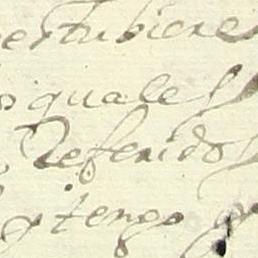 estubiere
quales
Referidos
y tengo